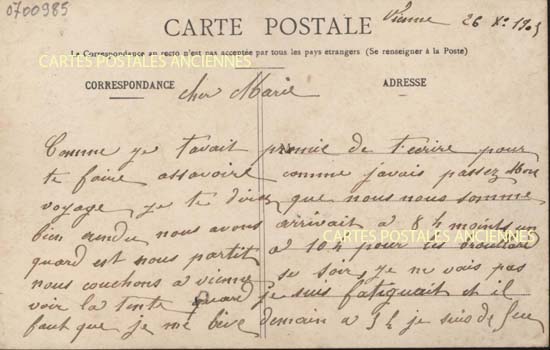 0700985
CARTE POSTALE
Vienne 26 Xe 1905
La Correspondance au recto n'est pas acceptée par tous les pays étrangers (Se renseigner à la Poste)
CARTES POSTALES ANCIENNES
CORRESPONDANCE
ADRESSE
cher Marie
Comme je t'avait promie de t'ecrire pour
te faire assavoire comme javais passez mon
voyage je te direz que nous nous somme
bien rendu nous avons arrivait a 8 h moints un
CARTES POSTALES ANCIENNES
quard est nous partit a 10 h pour les
nous couchons a vienne se soir, je ne vais pas
voir la tente quard je suis fatiguait et il
faut que je me lève demain a 5 h je suis de